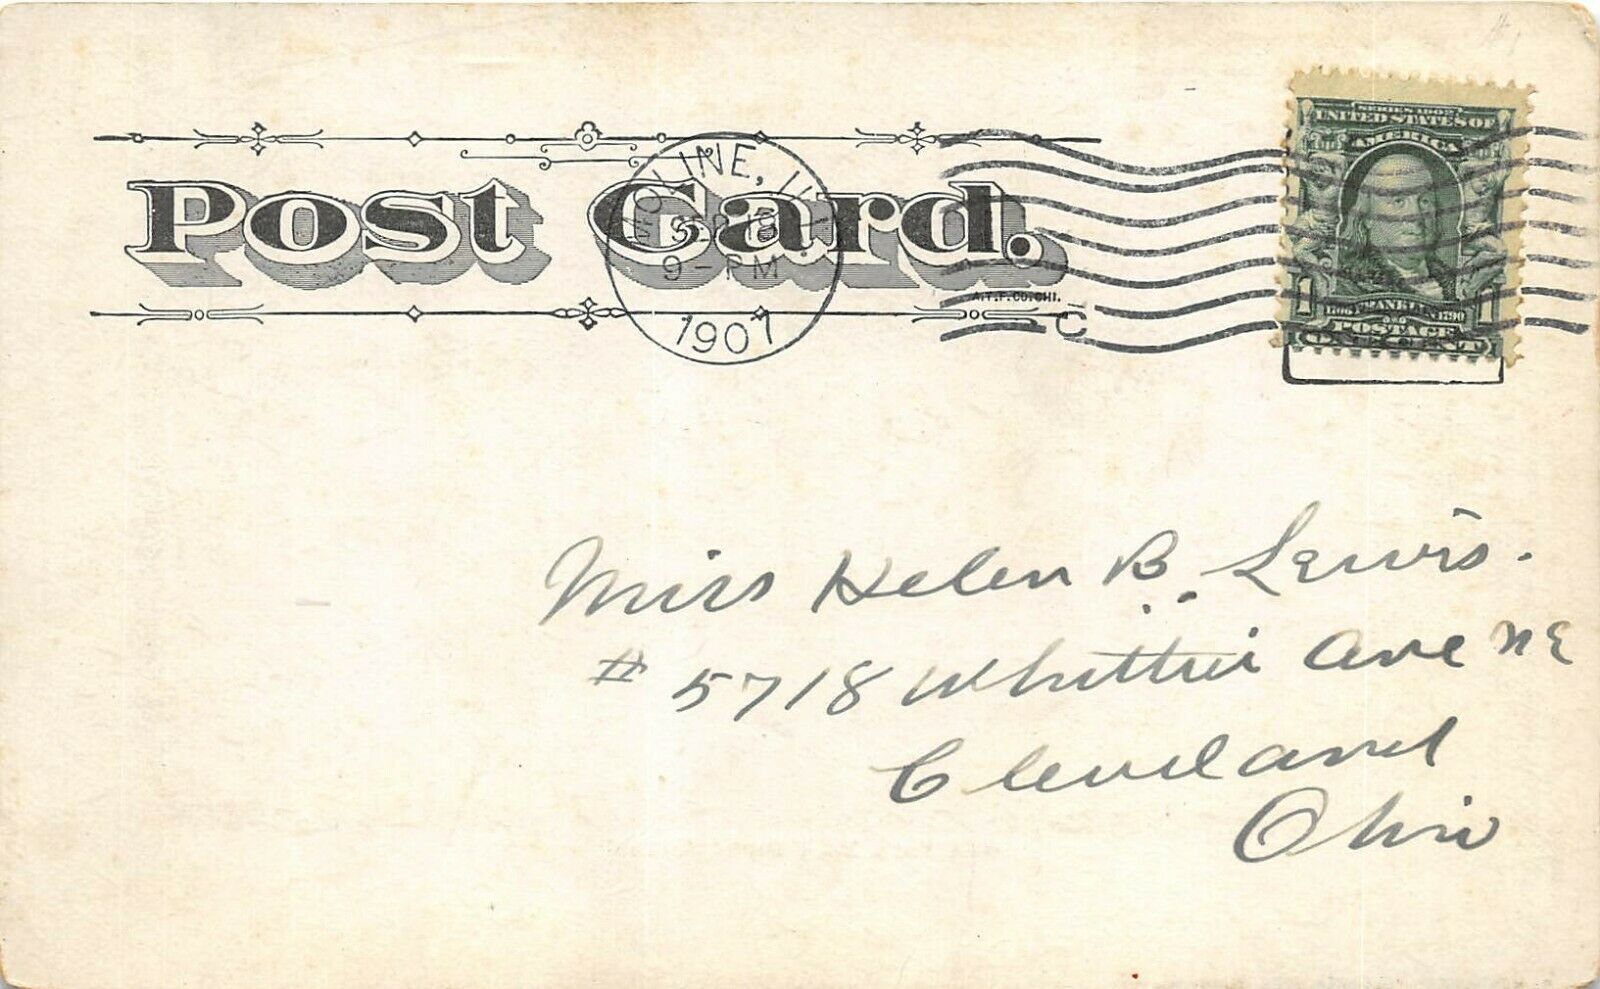 Post Card.
MOLINE, ILL.
SEP 18
9 - PM
1907
A.T.F.CO.CHI.
C
SERIES 1902
UNITED STATES OF
AMERICA
1 FRANKLIN 1
1706 1790
POSTAGE
ONE CENT
Miss Helen B. Lewis.
# 5718 Whittier Ave NE
Cleveland
Ohio